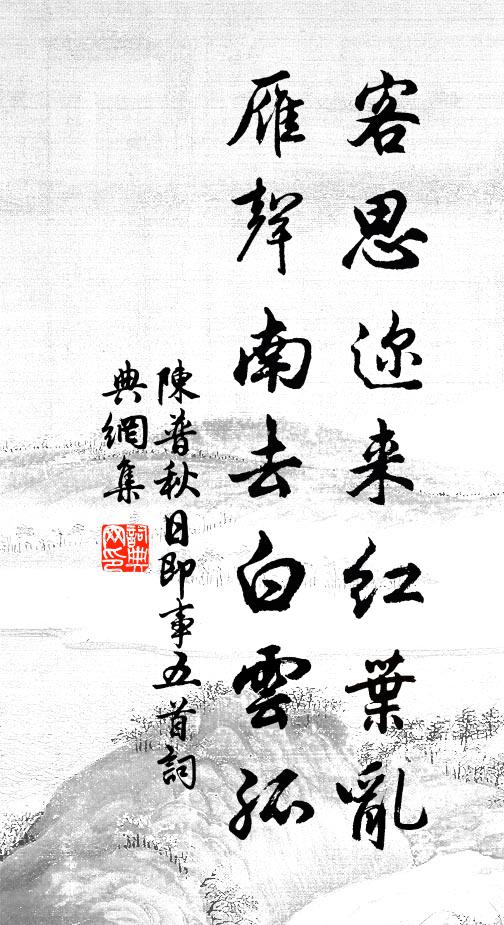 客思迩来红葉亂
雁聲南去白雲孤
陳普秋日即事五首詞
典網集
詞典
网印